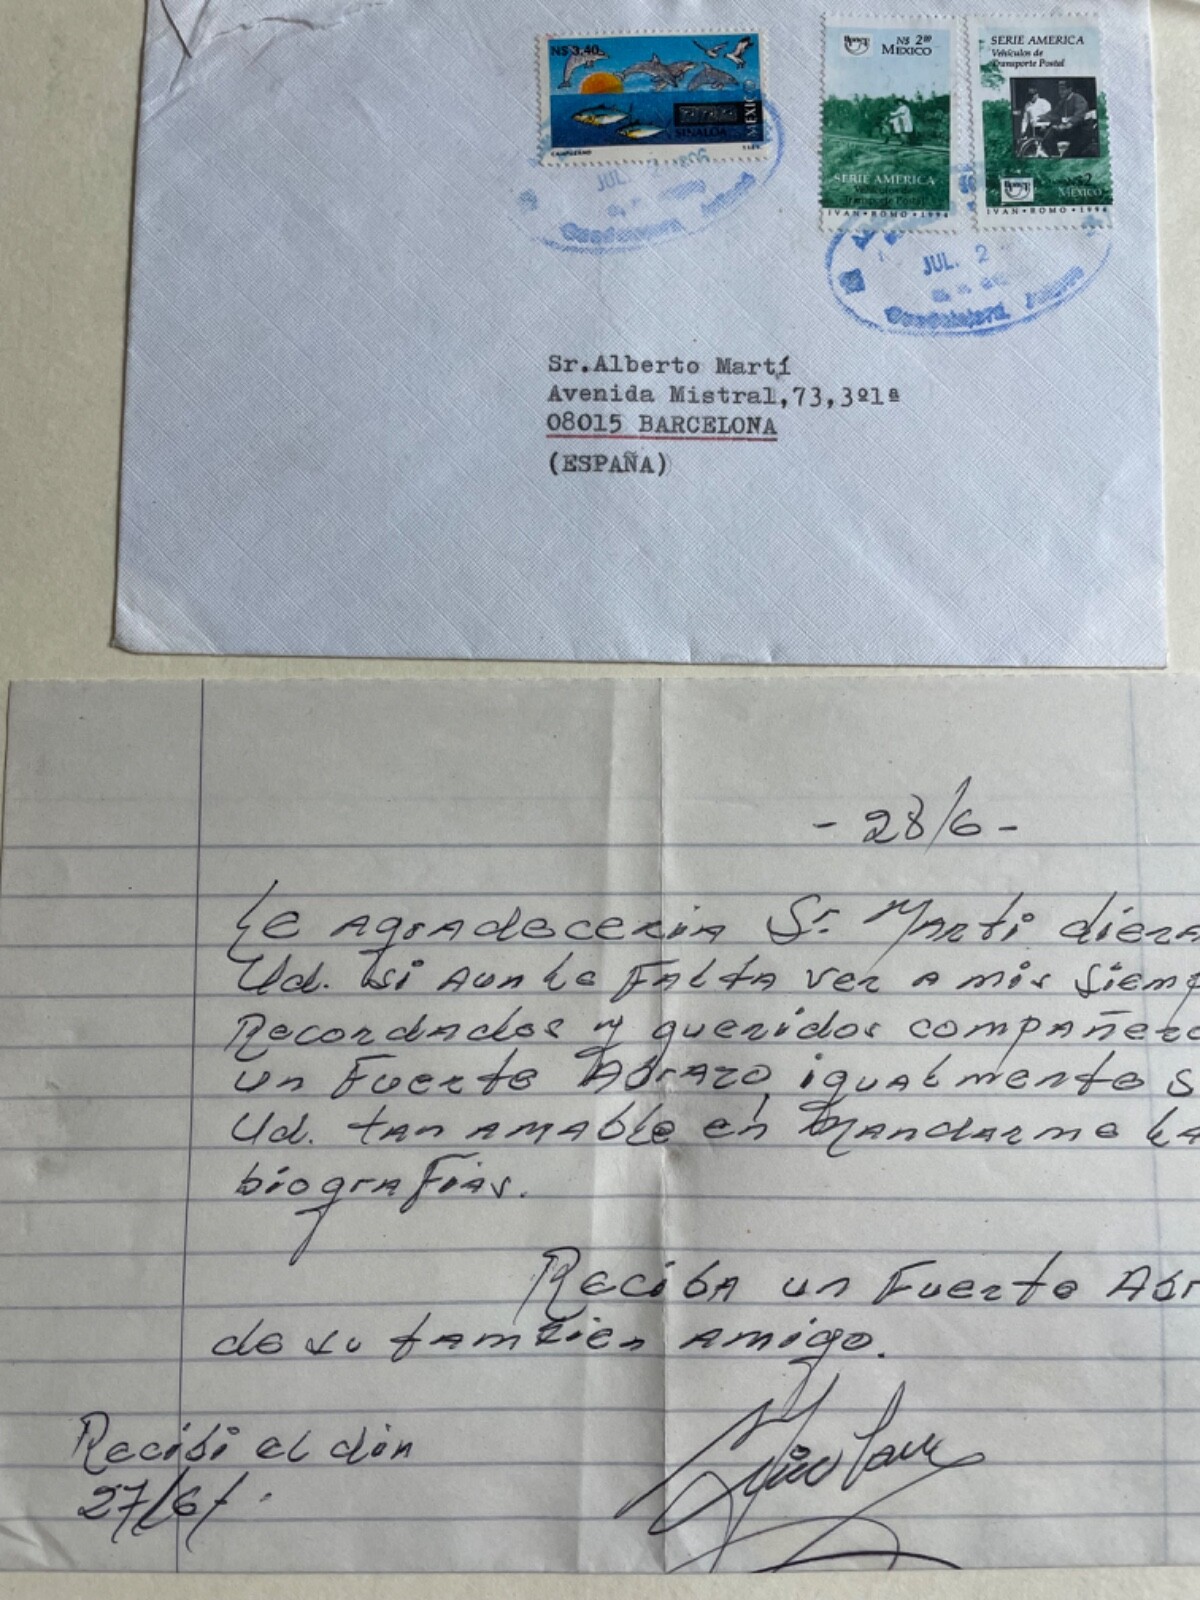 N$ 3.40
SINALOA
MEXICO
CAMPLERNO
N$ 2.00
MEXICO
SERIE AMERICA
Vehículos de
Transporte Postal
IVAN • ROMO • 1994
SERIE AMERICA
Vehículos de
Transporte Postal
N$ 2
MEXICO
IVAN • ROMO • 1994
JUL. 2
Guadalajara Jalisco
JUL. 2
Guadalajara, Jalisco
Sr.Alberto Martí
Avenida Mistral,73,3º1ª
08015 BARCELONA
(ESPAÑA)
- 28/6 -
Le agradeceria Sr. Marti diera
Ud. si aun le falta ver a mis siemp
Recordados y queridos compañero
un Fuerte Abrazo, igualmente s
Ud. tan amable en mandarme la
biografias.
Reciba un Fuerte Abr
de su tambien amigo.
Recibi el dia
27/6/.